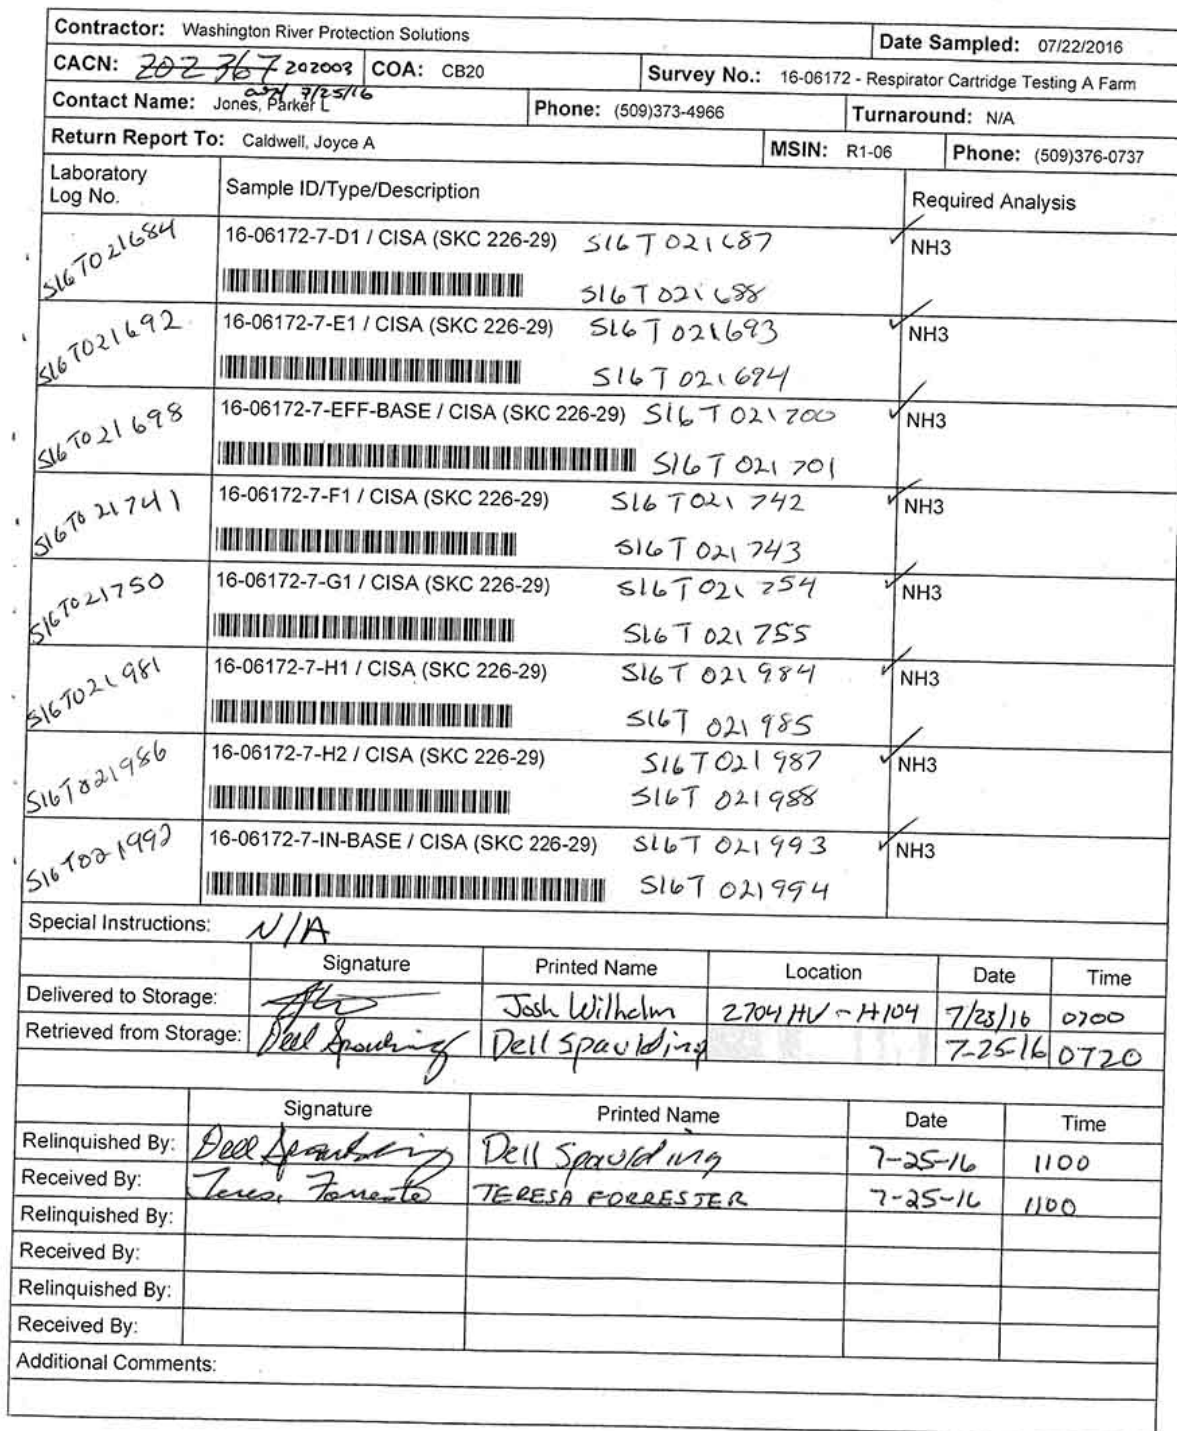 Contractor: Washington River Protection Solutions Date Sampled: 07/22/2016
CACN: 202367 202003 COA: CB20 Survey No.: 16-06172 - Respirator Cartridge Testing A Farm
7/25/16
Contact Name: Jones, Parker L Phone: (509)373-4966 Turnaround: N/A
Return Report To: Caldwell, Joyce A MSIN: R1-06 Phone: (509)376-0737
Laboratory Log No. Sample ID/Type/Description Required Analysis
S16T021684 16-06172-7-D1 / CISA (SKC 226-29) S16T021687 ✓ NH3
S16T021688
S16T021692 16-06172-7-E1 / CISA (SKC 226-29) S16T021693 ✓ NH3
S16T021694
S16T021698 16-06172-7-EFF-BASE / CISA (SKC 226-29) S16T021700 ✓ NH3
S16T021701
S16T021741 16-06172-7-F1 / CISA (SKC 226-29) S16T021742 ✓ NH3
S16T021743
S16T021750 16-06172-7-G1 / CISA (SKC 226-29) S16T021754 ✓ NH3
S16T021755
S16T021981 16-06172-7-H1 / CISA (SKC 226-29) S16T021984 ✓ NH3
S16T021985
S16T021986 16-06172-7-H2 / CISA (SKC 226-29) S16T021987 ✓ NH3
S16T021988
S16T021992 16-06172-7-IN-BASE / CISA (SKC 226-29) S16T021993 ✓ NH3
S16T021994
Special Instructions: N/A
Signature Printed Name Location Date Time
Delivered to Storage: Josh Wilhelm 2704HV-H104 7/23/16 0700
Retrieved from Storage: Dell Spaulding Dell Spaulding 7-25-16 0720
Signature Printed Name Date Time
Relinquished By: Dell Spaulding Dell Spaulding 7-25-16 1100
Received By: Teresa Forrester TERESA FORRESTER 7-25-16 1100
Relinquished By:
Received By:
Relinquished By:
Received By:
Additional Comments: